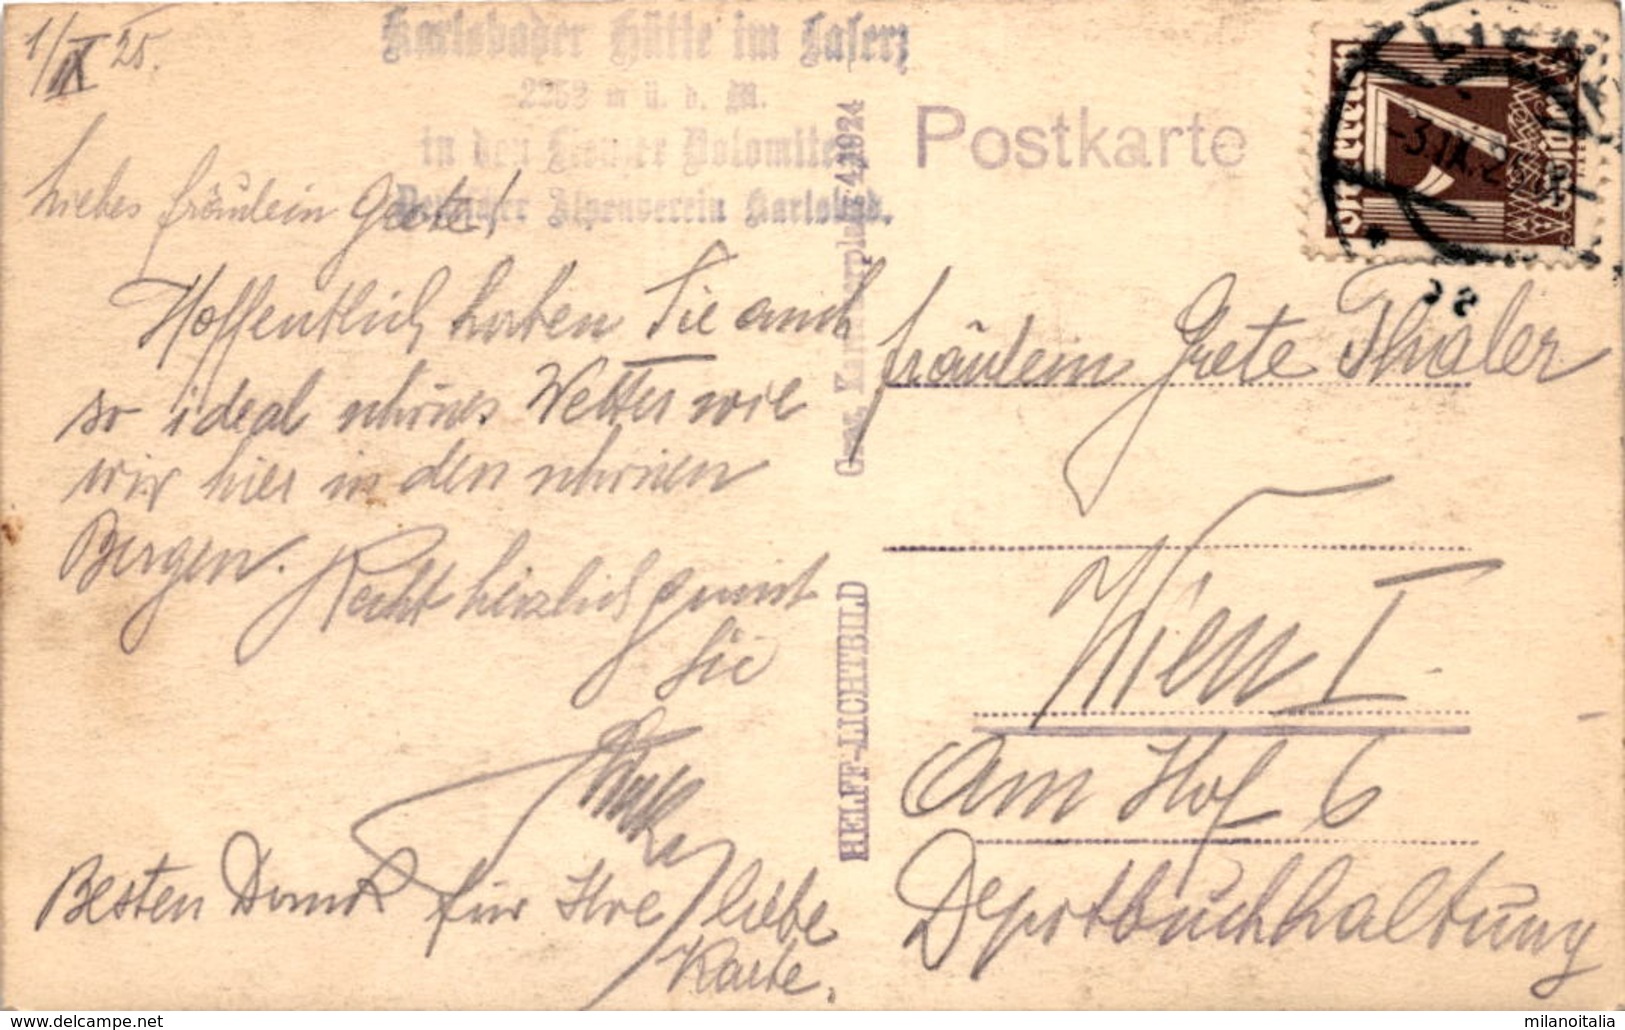 1/IX 25.
Karlsbader Hütte im Laserz
2252 m ü. d. M.
in den Lienzer Dolomiten
Deutscher Alpenverein Karlsbad.
Liebes Fräulein Grete!
Hoffentlich haben Sie auch
so ideal schönes Wetter wie
wir hier in den schönen
Bergen. Recht herzlich grüsst
Sie
Besten Dank für Ihre liebe
Karte.
HELFF-LICHTBILD
Graz,
Postkarte
7
-3.IX.25
Fräulein Grete Thaler
Wien I.
Am Hof 6
Depotbuchhaltung
www.delcampe.net
milanoitalia